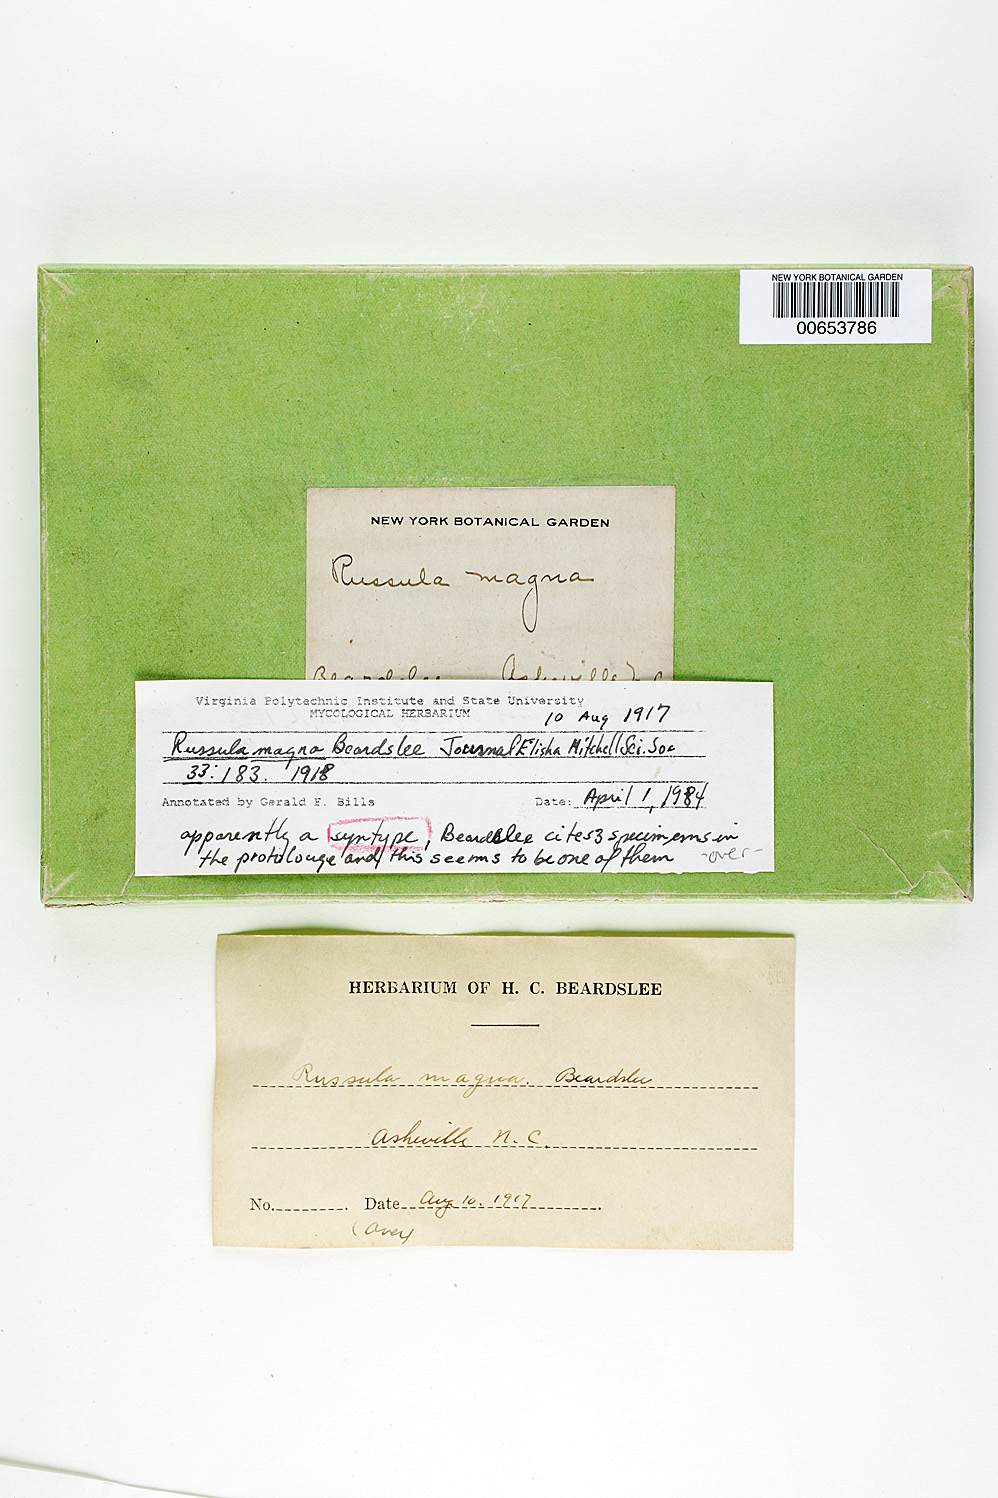 NEW YORK BOTANICAL GARDEN
00653786
NEW YORK BOTANICAL GARDEN
Russula magna
Beardslee Asheville N.C.
Virginia Polytechnic Institute and State University
MYCOLOGICAL HERBARIUM
10 Aug 1917
Russula magna Beardslee Journal Elisha Mitchell Sci. Soc
33:183. 1918
Annotated by Gerald F. Bills Date: April 1, 1984
apparently a syntype, Beardslee cites 3 specimems in
the protolouge and this seems to be one of them -over-
HERBARIUM OF H. C. BEARDSLEE
Russula magna. Beardslee
Asheville N.C.
No. Date Aug 10. 1917
(over)